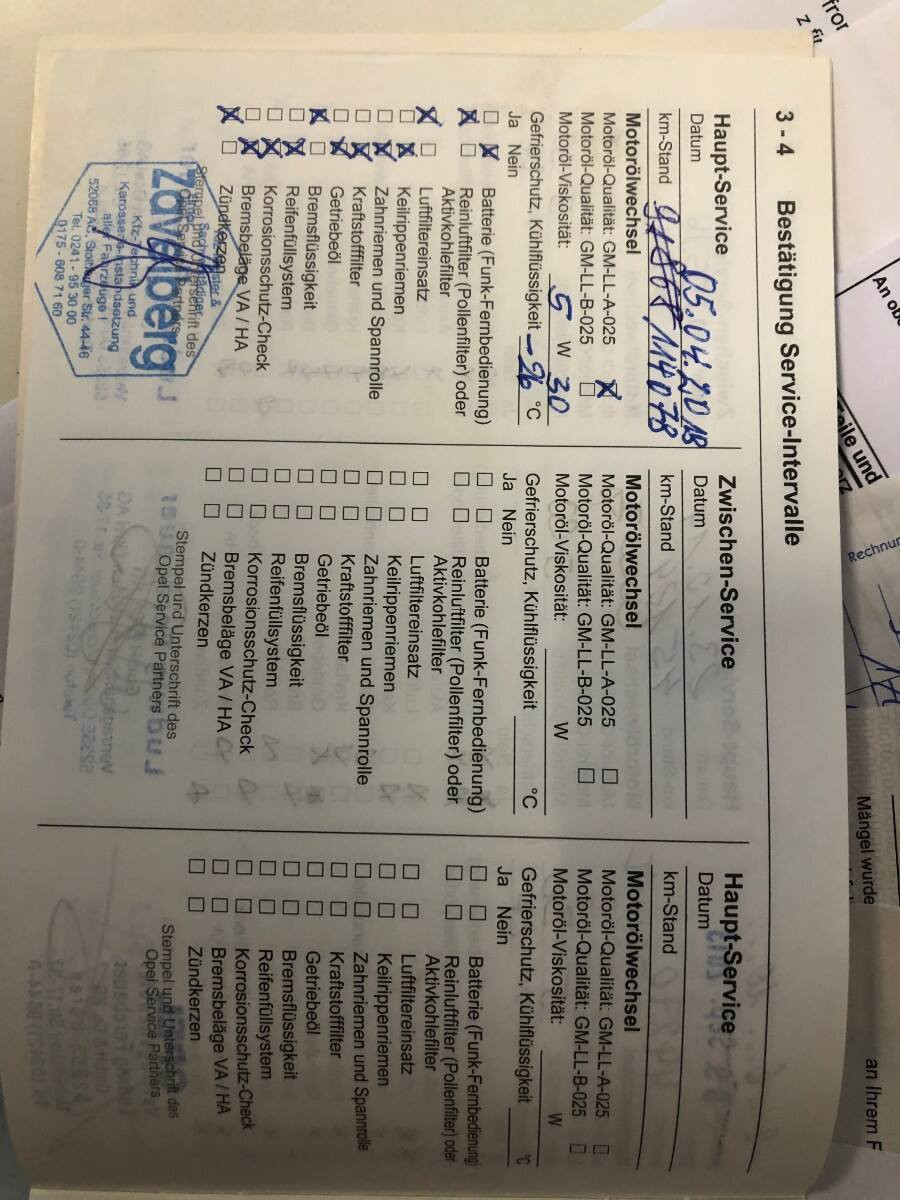 3 - 4 Bestätigung Service-Intervalle
Haupt-Service
Datum 05.04.2018
km-Stand 114078
Motorölwechsel
Motoröl-Qualität: GM-LL-A-025 ☒
Motoröl-Qualität: GM-LL-B-025 ☐
Motoröl-Viskosität: 5 W 30
Gefrierschutz, Kühlflüssigkeit -26 °C
Ja Nein
☐ ☒ Batterie (Funk-Fernbedienung)
☒ ☐ Reinluftfilter (Pollenfilter) oder
Aktivkohlefilter
☒ ☐ Luftfiltereinsatz
☐ ☒ Keilrippenriemen
☐ ☒ Zahnriemen und Spannrolle
☐ ☒ Kraftstofffilter
☐ ☒ Getriebeöl
☒ ☐ Bremsflüssigkeit
☐ ☒ Reifenfüllsystem
☐ ☒ Korrosionsschutz-Check
☐ ☒ Bremsbeläge VA / HA
☒ ☐ Zündkerzen
Stempel und Unterschrift des
Zavelberg
Kfz-Technik und
Karosserie-Instandsetzung
alle Fahrzeuge !
52068 AC, Stolberger Str. 44-46
Tel. 0241 - 95 30 00
0175 - 608 71 60
Zwischen-Service
Datum
km-Stand
Motorölwechsel
Motoröl-Qualität: GM-LL-A-025 ☐
Motoröl-Qualität: GM-LL-B-025 ☐
Motoröl-Viskosität: W
Gefrierschutz, Kühlflüssigkeit °C
Ja Nein
☐ ☐ Batterie (Funk-Fernbedienung)
☐ ☐ Reinluftfilter (Pollenfilter) oder
Aktivkohlefilter
☐ ☐ Luftfiltereinsatz
☐ ☐ Keilrippenriemen
☐ ☐ Zahnriemen und Spannrolle
☐ ☐ Kraftstofffilter
☐ ☐ Getriebeöl
☐ ☐ Bremsflüssigkeit
☐ ☐ Reifenfüllsystem
☐ ☐ Korrosionsschutz-Check
☐ ☐ Bremsbeläge VA / HA
☐ ☐ Zündkerzen
Stempel und Unterschrift des
Opel Service Partners
Haupt-Service
Datum
km-Stand
Motorölwechsel
Motoröl-Qualität: GM-LL-A-025 ☐
Motoröl-Qualität: GM-LL-B-025 ☐
Motoröl-Viskosität: W
Gefrierschutz, Kühlflüssigkeit °C
Ja Nein
☐ ☐ Batterie (Funk-Fernbedienung)
☐ ☐ Reinluftfilter (Pollenfilter) oder
Aktivkohlefilter
☐ ☐ Luftfiltereinsatz
☐ ☐ Keilrippenriemen
☐ ☐ Zahnriemen und Spannrolle
☐ ☐ Kraftstofffilter
☐ ☐ Getriebeöl
☐ ☐ Bremsflüssigkeit
☐ ☐ Reifenfüllsystem
☐ ☐ Korrosionsschutz-Check
☐ ☐ Bremsbeläge VA / HA
☐ ☐ Zündkerzen
Stempel und Unterschrift des
Opel Service Partners
eile und
Mängel wurde
an Ihrem F